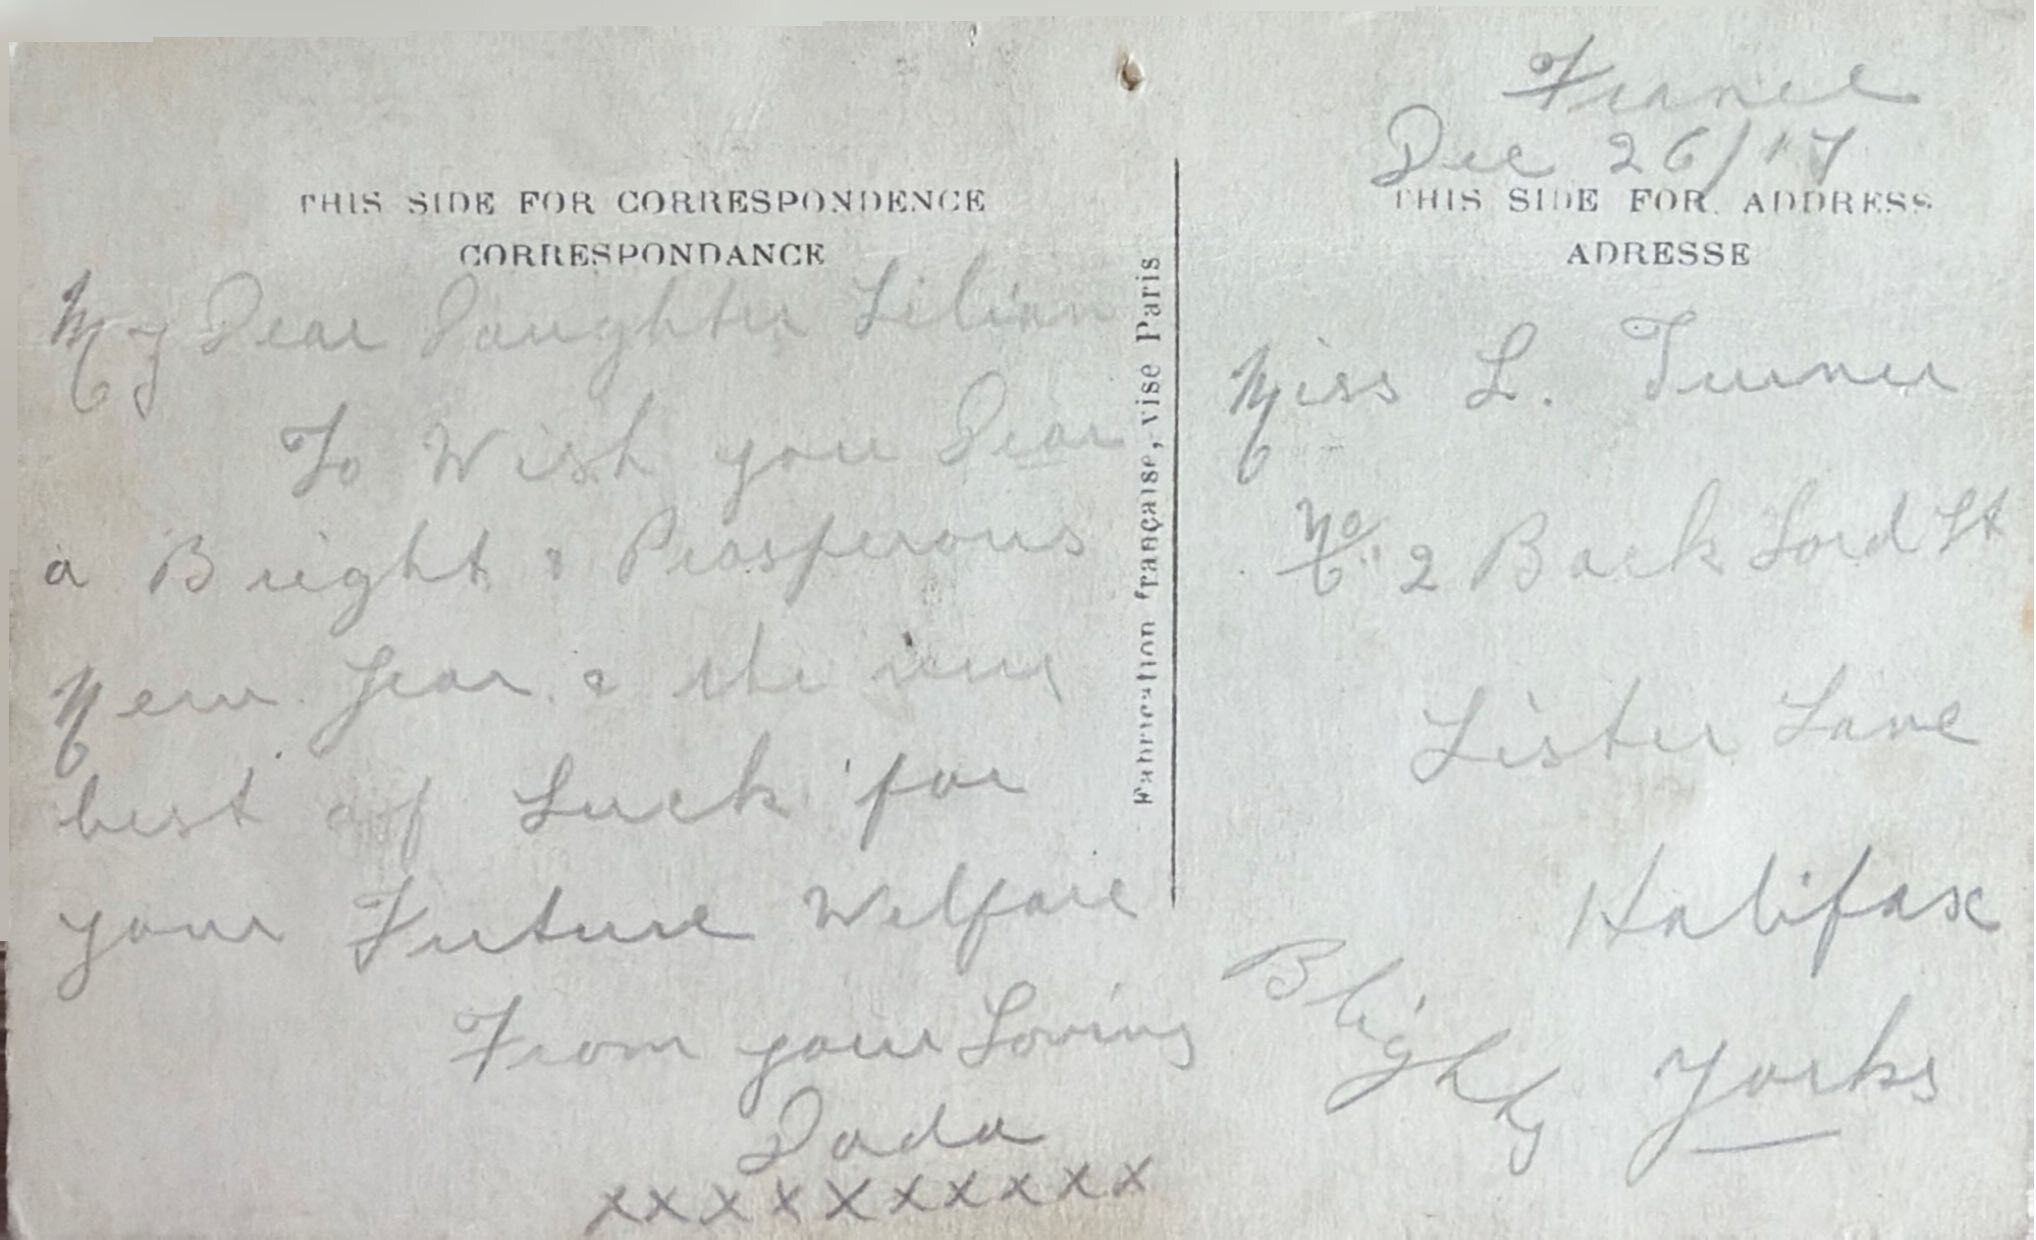 THIS SIDE FOR CORRESPONDENCE
CORRESPONDANCE
My Dear Daughter Lilian
To Wish you Dear
a Bright & Prosperous
New Year & the very
best of Luck for
your Future Welfare
From your Loving
Dada
xxxxxxxxxx
Fabrication française, vise Paris
France
Dec 26/17
THIS SIDE FOR ADDRESS
ADRESSE
Miss L. Turner
No 2 Back Lord St
Lister Lane
Halifax
Blighty Yorks